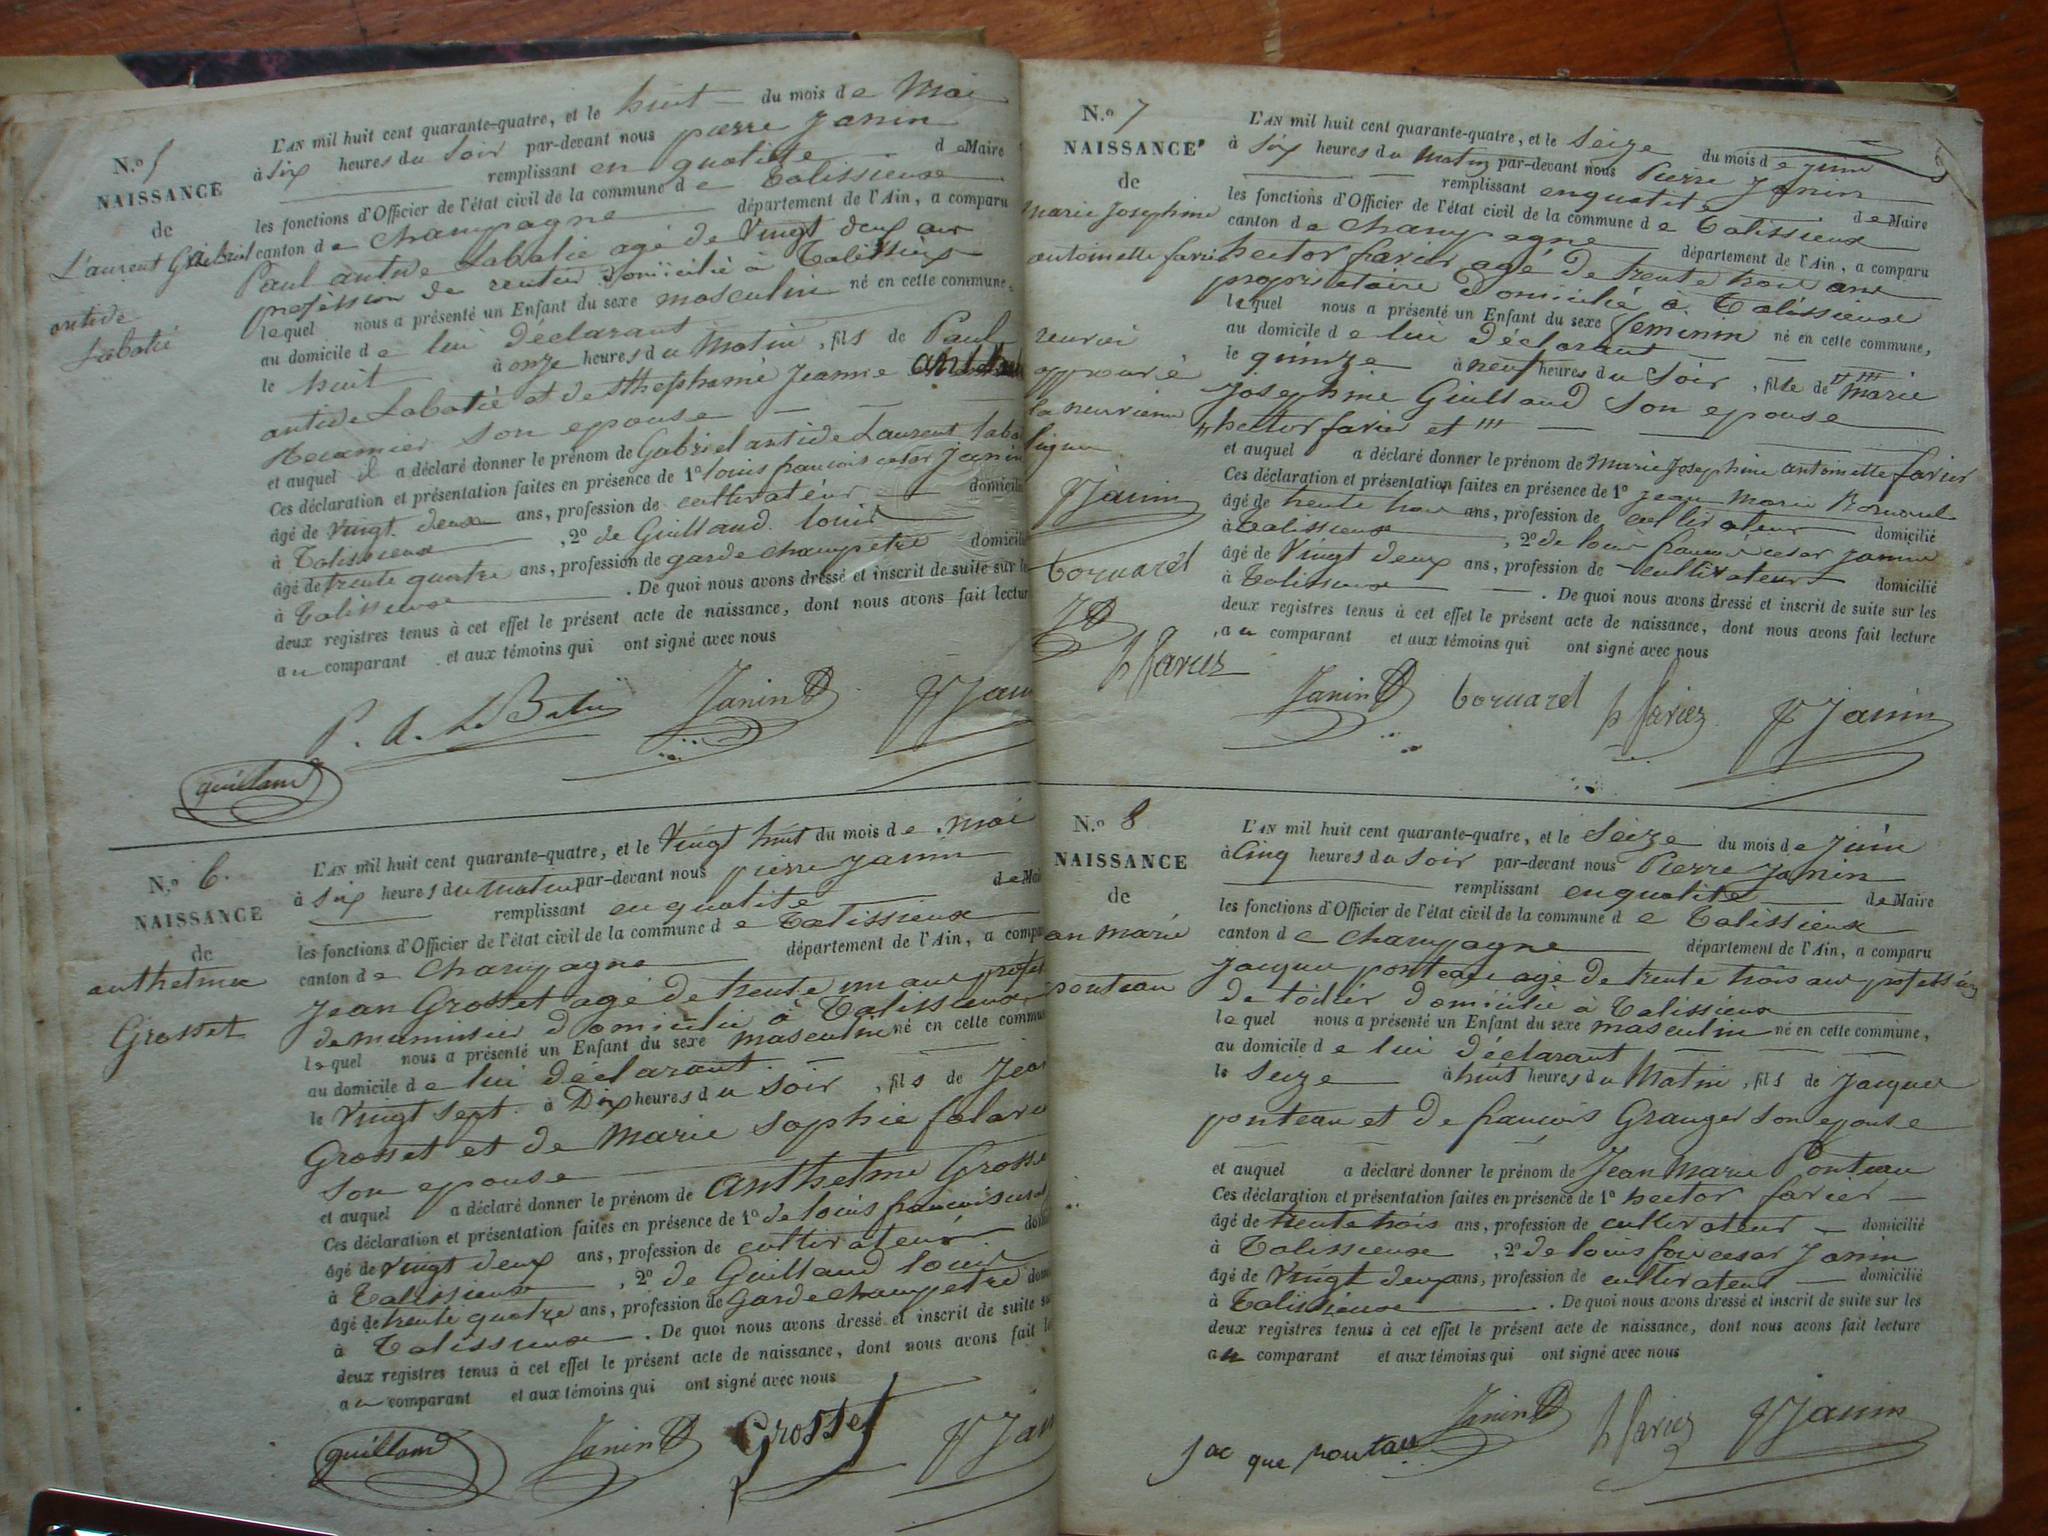 N.º 5
NAISSANCE
de
Laurent Gabriel
antide
Labatié
L'AN mil huit cent quarante-quatre, et le huit du mois de Mai
à six heures du soir par-devant nous pierre Janin
remplissant en qualité de Maire
les fonctions d'Officier de l'état civil de la commune de Talissieux
canton de Champagne département de l'Ain, a comparu
Paul antide Labatie agé de Vingt deux ans
profession de rentier domicilié à Talissieux
lequel nous a présenté un Enfant du sexe masculin né en cette commune,
au domicile de lui déclarant
le huit à onze heures du Matin, fils de Paul
antide Labatié et de Jeanne
son epouse
et auquel il a déclaré donner le prénom de Gabriel antide Laurent
Ces déclaration et présentation faites en présence de 1º louis francois cesar Janin
âgé de Vingt deux ans, profession de cultivateur
à Talissieux, 2º de Guilland louis
âgé de trente quatre ans, profession de garde champetre
à Talissieux. De quoi nous avons dressé et inscrit de suite sur
deux registres tenus à cet effet le présent acte de naissance, dont nous avons fait
au comparant et aux témoins qui ont signé avec nous
P. A. LaBatie Janin
guilland
N.º 6.
NAISSANCE
de
anthelme
Grosset
L'AN mil huit cent quarante-quatre, et le Vingt huit du mois de mai
à six heures du matin par-devant nous pierre Janin
remplissant en qualité
les fonctions d'Officier de l'état civil de la commune de Talissieux
canton de Champagne département de l'Ain, a
Jean Grosset agé de trente un ans
de domicilié à Talissieux
lequel nous a présenté un Enfant du sexe masculin né en cette
au domicile de lui déclarant.
le Vingt sept à Dix heures du soir, fils de
Grosset et de Marie sophie
son epouse
et auquel a déclaré donner le prénom de anthelme
Ces déclaration et présentation faites en présence de 1º de louis francois
âgé de vingt deux ans, profession de cultivateur
à Talissieux, 2º de Guilland louis
âgé de trente quatre ans, profession de Garde champetre
à Talissieux. De quoi nous avons dressé et inscrit de suite
deux registres tenus à cet effet le présent acte de naissance, dont nous avons fait
au comparant et aux témoins qui ont signé avec nous
guilland Janin Grosset
N.º 7
NAISSANCE
de
marie Josephine
antoinette
approuvé
P Janin
bornarel
h favier
L'AN mil huit cent quarante-quatre, et le Seize du mois de juin
à six heures du matin par-devant nous Pierre Janin
remplissant en qualité de Maire
les fonctions d'Officier de l'état civil de la commune de Talissieux
canton de champagne département de l'Ain, a comparu
hector favier agé de trente trois ans
proprietaire domicilié à Talissieux
lequel nous a présenté un Enfant du sexe feminin né en cette commune,
au domicile de lui déclarant
le quinze à neuf heures du Soir, fille de marie
Josephine Guilland son epouse
hector favier et
et auquel a déclaré donner le prénom de Marie Josephine antoinette favier
Ces déclaration et présentation faites en présence de 1º jean Marie Bornarel
âgé de trente trois ans, profession de cultivateur domicilié
à Talissieux, 2º de louis francois cesar janin
âgé de Vingt deux ans, profession de cultivateur domicilié
à Talissieux. De quoi nous avons dressé et inscrit de suite sur les
deux registres tenus à cet effet le présent acte de naissance, dont nous avons fait lecture
au comparant et aux témoins qui ont signé avec nous
Janin bornarel h favier P Janin
N.º 8
NAISSANCE
de
marie
ponteau
L'AN mil huit cent quarante-quatre, et le Seize du mois de juin
à Cinq heures du soir par-devant nous Pierre Janin
remplissant en qualité de Maire
les fonctions d'Officier de l'état civil de la commune de Talissieux
canton de champagne département de l'Ain, a comparu
jacques ponteau agé de trente trois ans profession
de domicilié à Talissieux
lequel nous a présenté un Enfant du sexe masculin né en cette commune,
au domicile de lui déclarant
le seize à huit heures du Matin, fils de jacques
ponteau et de francois Granger son epouse
et auquel a déclaré donner le prénom de Jean Marie Ponteau
Ces déclaration et présentation faites en présence de 1º hector favier
âgé de trente trois ans, profession de cultivateur domicilié
à Talissieux, 2º de louis fois cesar Janin
âgé de Vingt deux ans, profession de cultivateur domicilié
à Talissieux. De quoi nous avons dressé et inscrit de suite sur les
deux registres tenus à cet effet le présent acte de naissance, dont nous avons fait lecture
au comparant et aux témoins qui ont signé avec nous
Jac que poutau Janin h favier P Janin